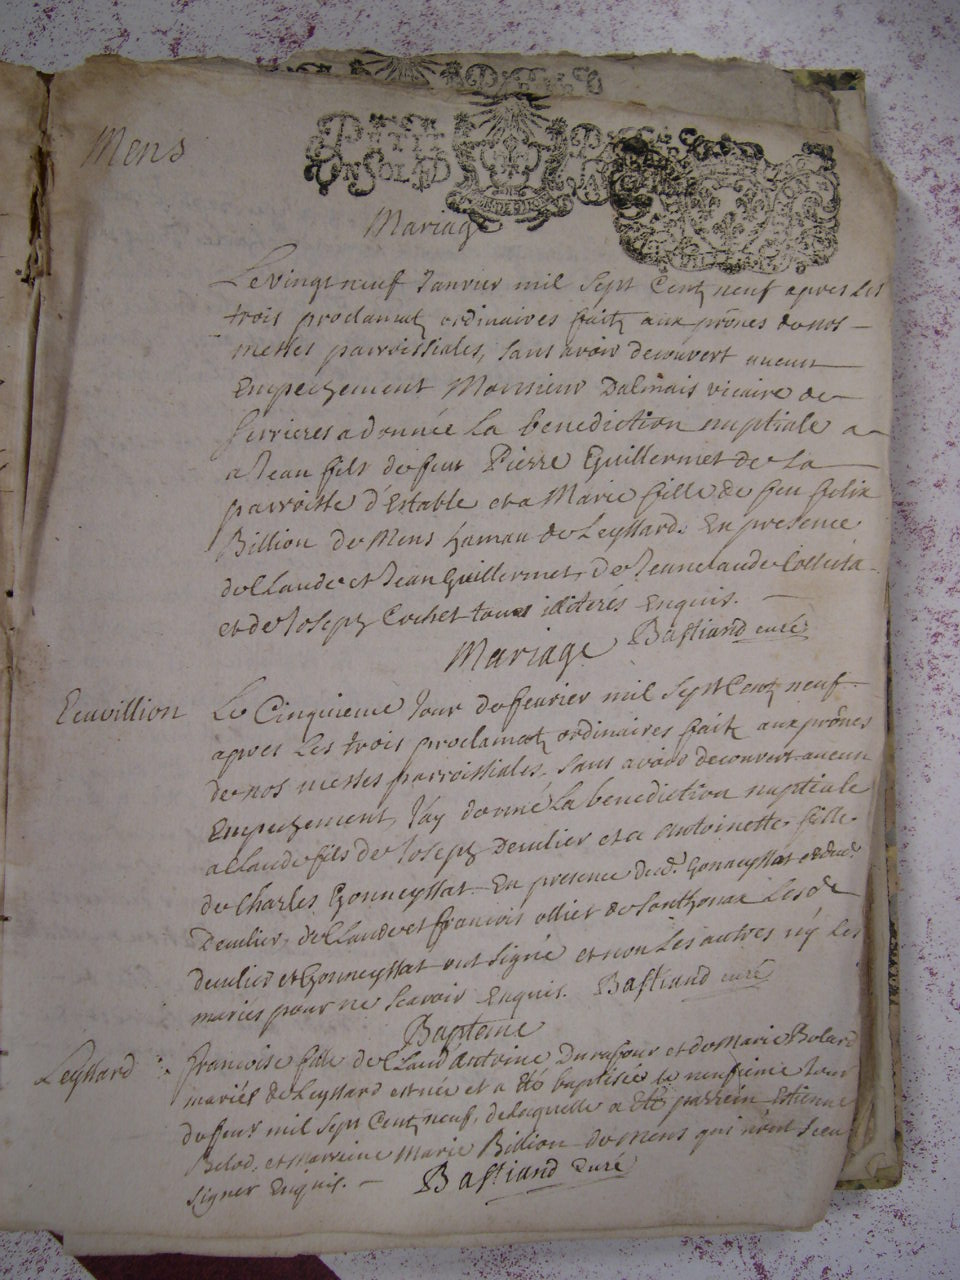 Mens
PETIT
UN SOL LD
Mariage
Le vingt neuf Janvier mil sept Centz neuf apres les
trois proclamatz ordinaires faitz aux prônes de nos
messes parroissiales, sans avoir decouvert aucun
Empechement Monsieur Dalmais vicaire de
serrieres a donnée La benediction nuptiale a
a Jean fils de feu Pierre Guillermet de La
parroisse d'Estable et a Marie fille de feu felix
Billion de Mens hamau de Leyssard. En presence
de Claude et Jean Guillermet, de Jeanclaude
et de Joseph Cochet tous illiterés Enquis.
Bastiand curé
Mariage
Leuvillion
Le Cinquieme Jour de feuvrier mil sept Centz neuf
apres Les trois proclamatz ordinaires faitz aux prônes
de nos messes parroissiales, sans avoir decouvert aucun
Empechement, J'ay donné La benediction nuptiale
a Claude fils de Joseph Deculier et a Antoinette fille
de Charles Gonneyssat En presence dud. Gonneyssat et dud.
Deculier, de Claude et francois ollier de Sonthonax Les d
deculier et Gonneyssat ont signé et non Les autres ny Les
mariés pour ne scavoir Enquis. Bastiand curé
Bapteme
Leyssard
francoise fille de Claud' Antoine Durafour et de Marie Bolard
mariés de Leyssard est née et a été baptisée le neufieme Jour
de feur mil sept Centz neuf, de laquelle a été parrein Estienne
Belod, et marreine Marie Billion de Mens qui n'ont sceu
signer Enquis. Bastiand Curé